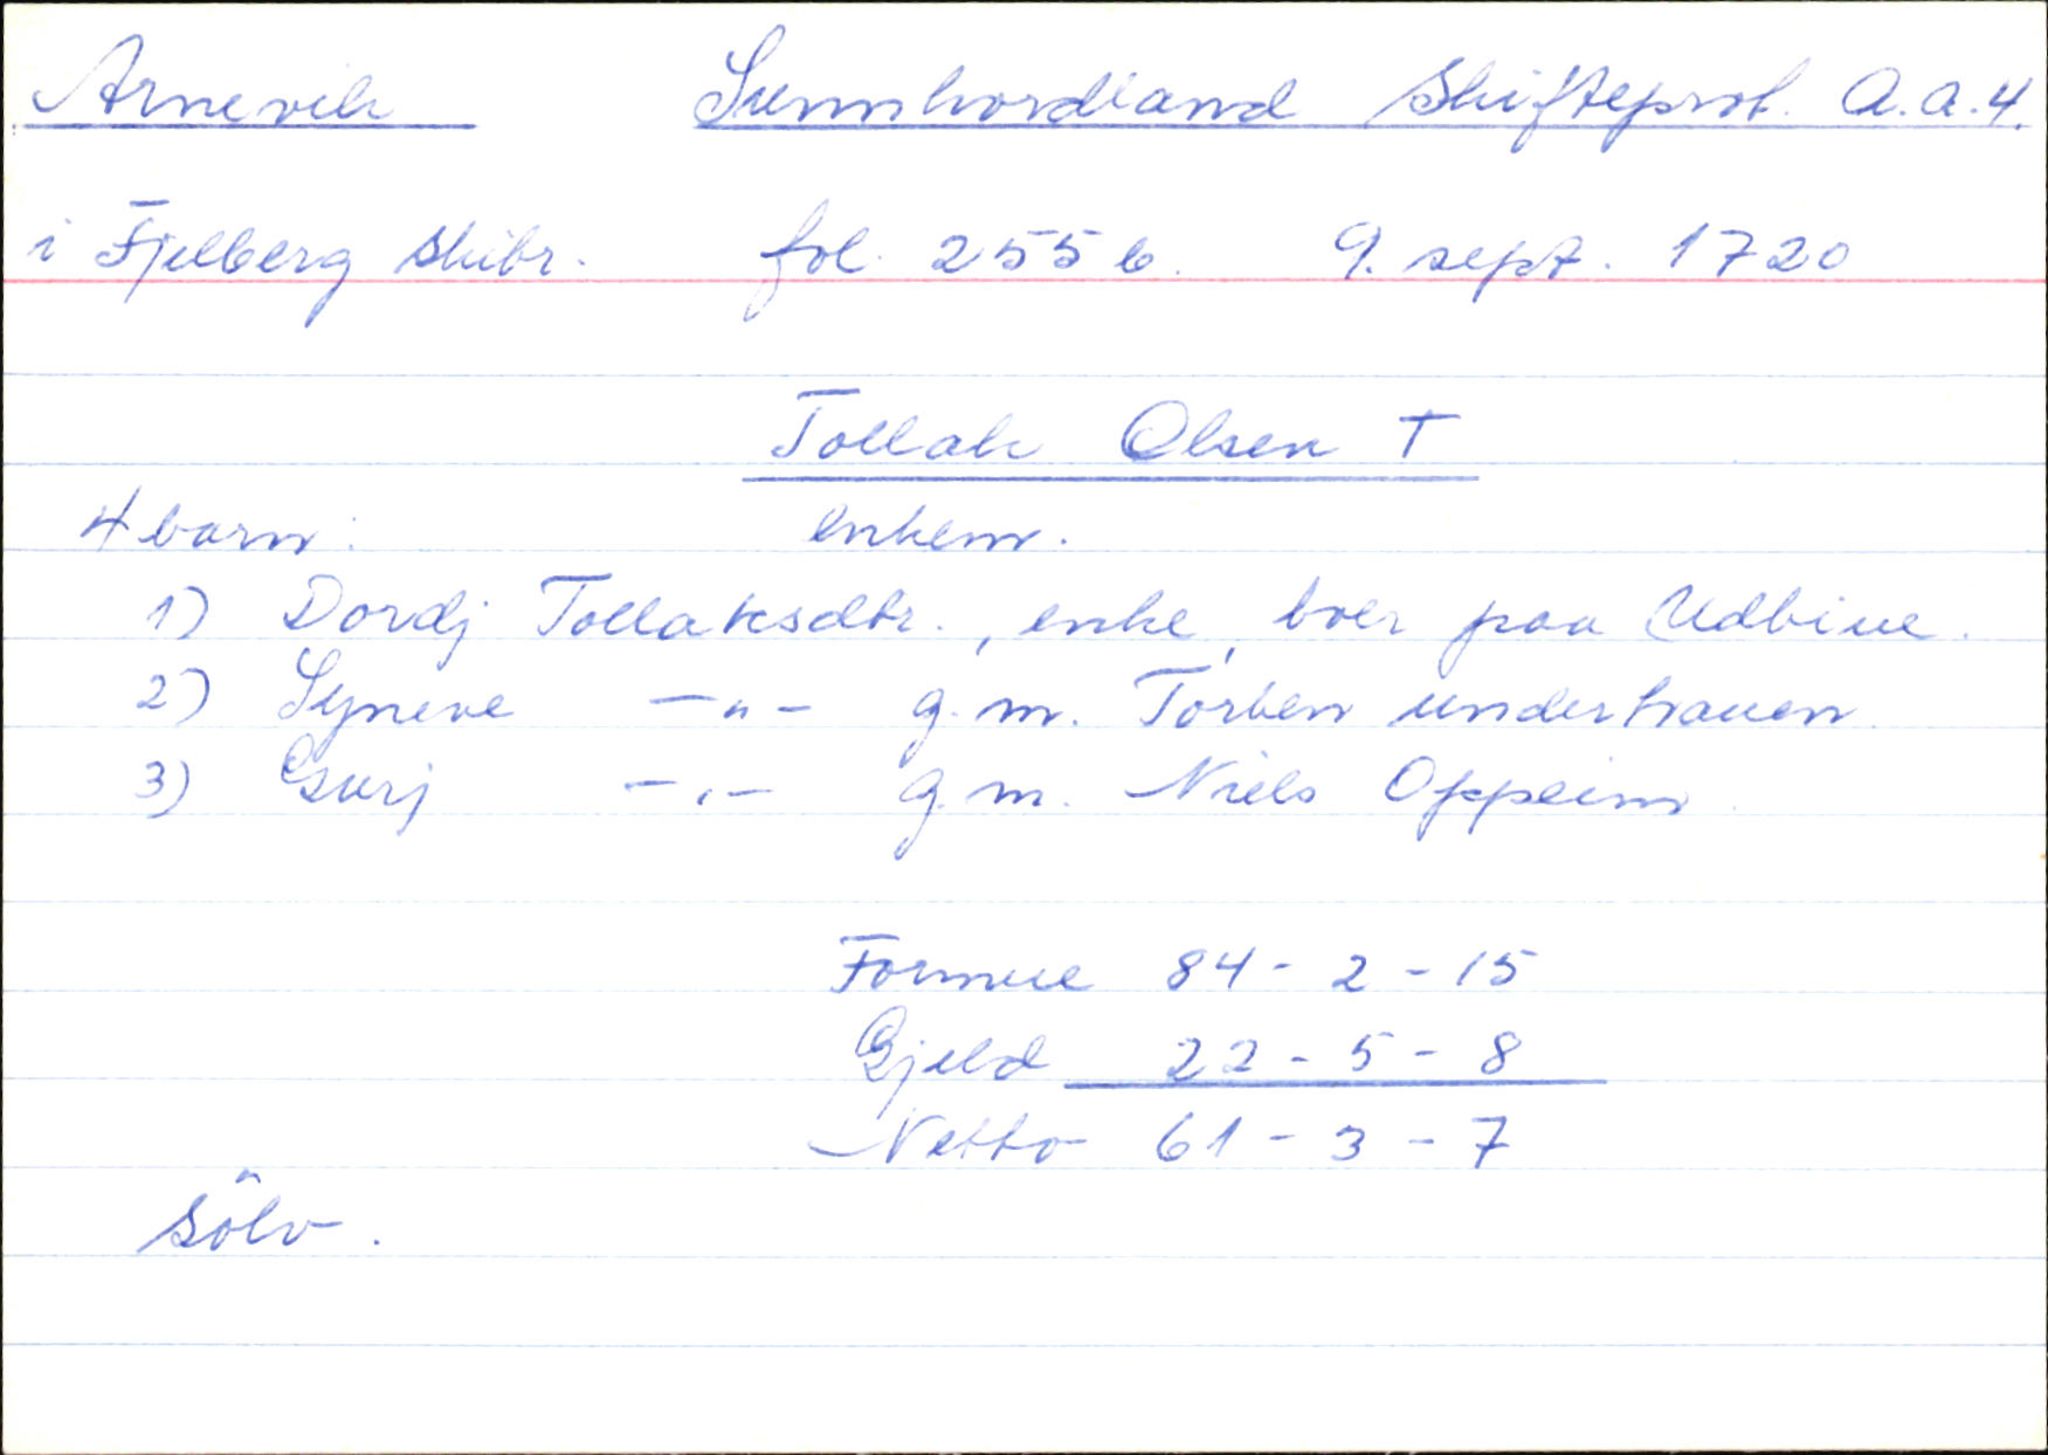 Arnevik Sunnhordland Skifteprot. A.a.4.
i Fjelberg skibr. fol. 255 b. 9. sept. 1720
Tollak Olsen †
enkem.
4 barn:
1) Dordj Tollaksdtr., enke, boer paa Udbiue.
2) Syneve —"— g.m. Torben underhauen.
3) Gurj —"— g.m. Niels Oppeim.
Formue 84 - 2 - 15
Gjeld 22 - 5 - 8
Netto 61 - 3 - 7
Sölv.